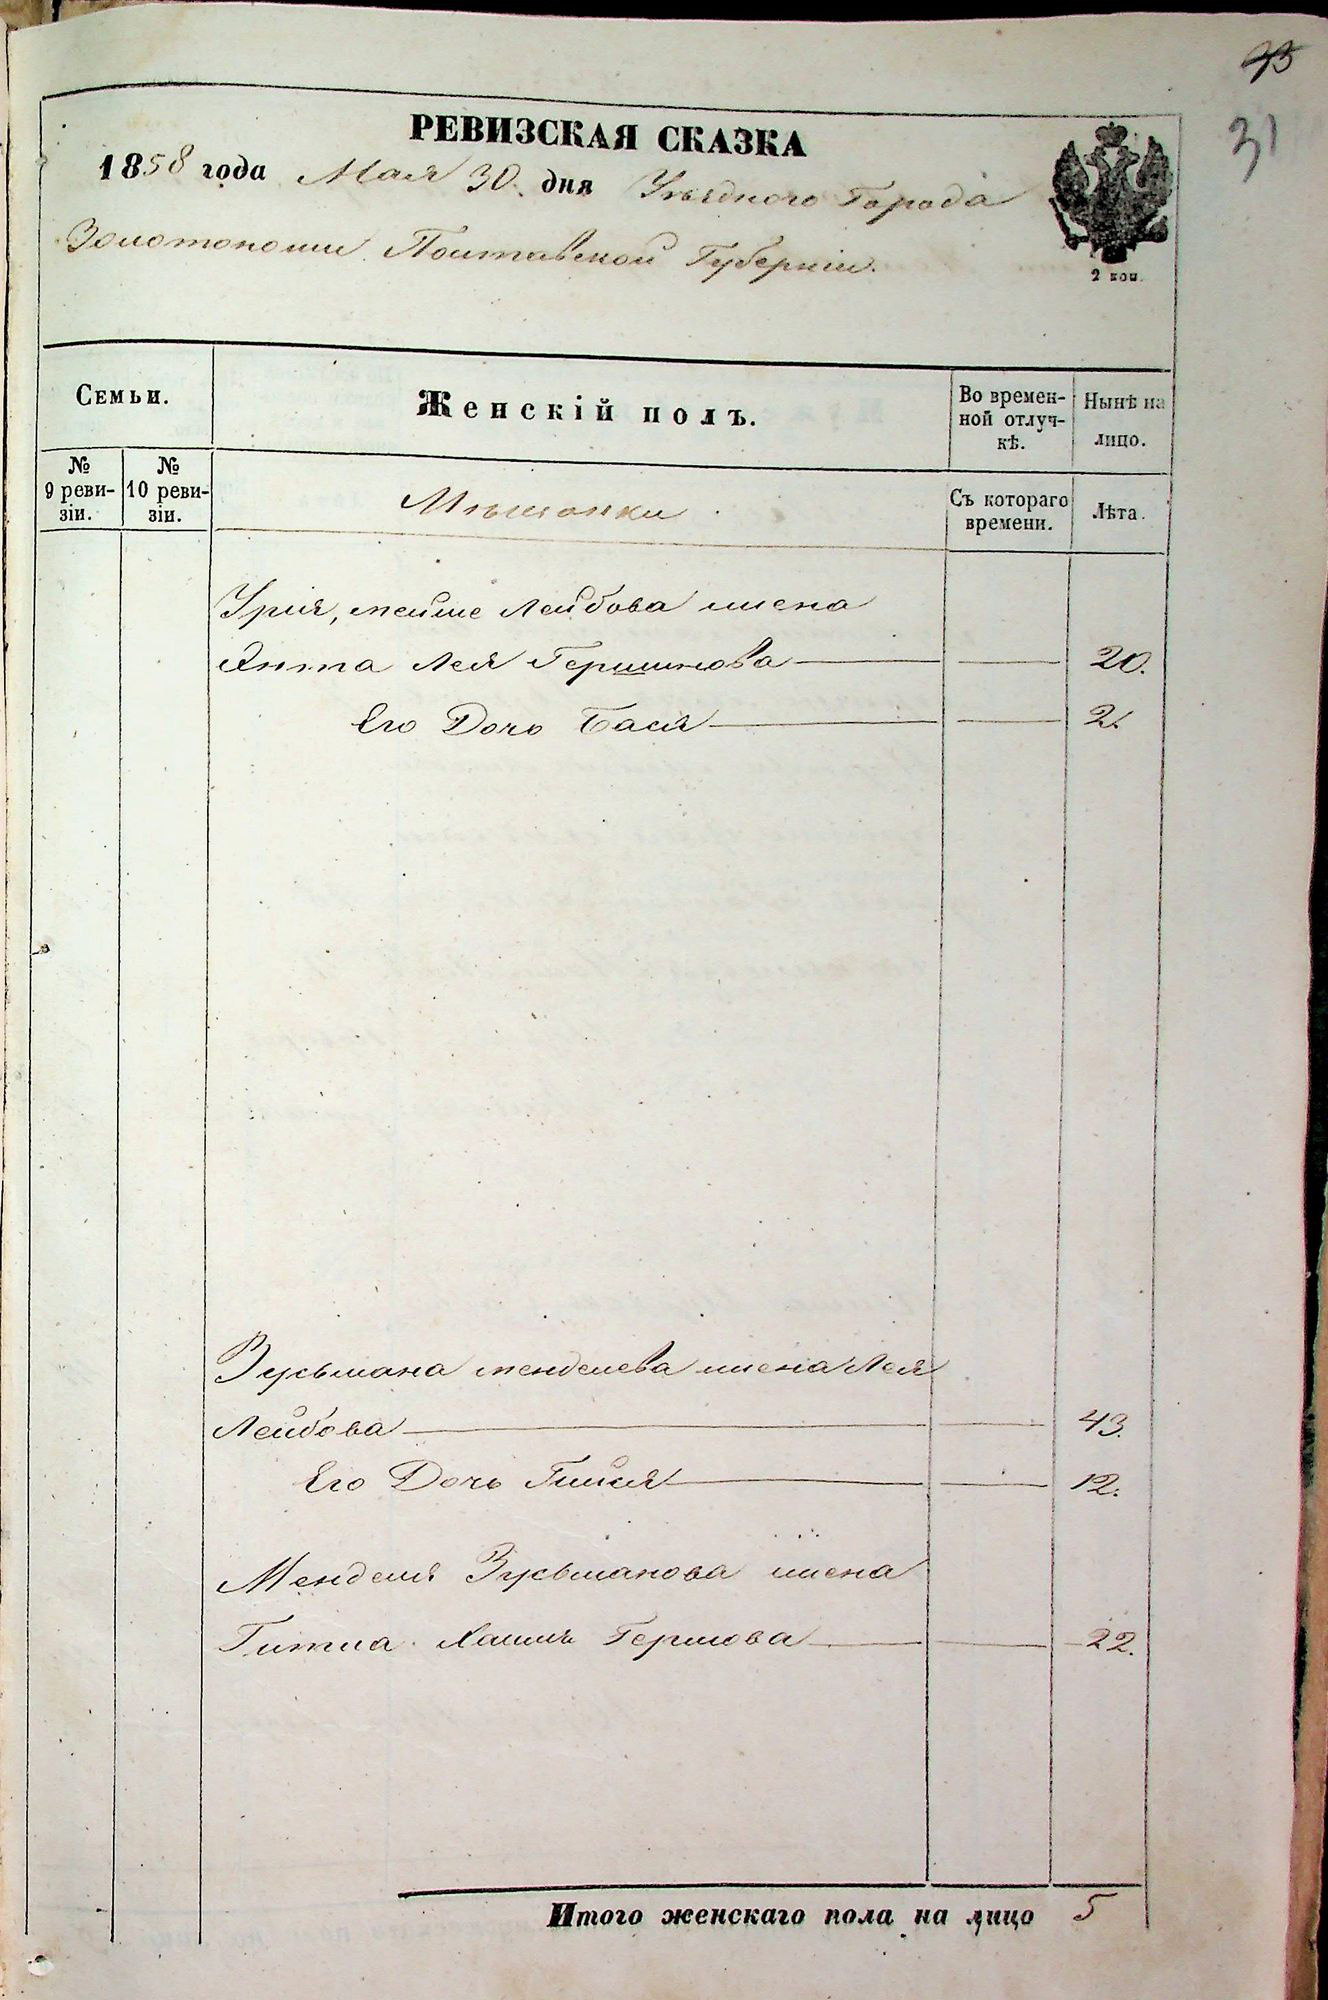 31
РЕВИЗСКАЯ СКАЗКА
1858 года Мая 30 дня Уѣзднаго Города
Золотоноши Полтавской Губерніи.
2 коп.
Семьи.
Женскій полъ.
Во времен-
ной отлуч-
кѣ.
Нынѣ на
лицо.
№
9 реви-
зіи.
№
10 реви-
зіи.
Мѣщанки
Съ котораго
времени.
Лѣта.
Урія, Мейше Лейбова жена
Янта Лея Гершкова 20.
Его Дочь Бася 2.
Зусьмана Менделева жена Лея
Лейбова 43.
Его Дочь 12.
Менделя Зусьманова жена
Гитла Гершова 22.
Итого женскаго пола на лицо 5